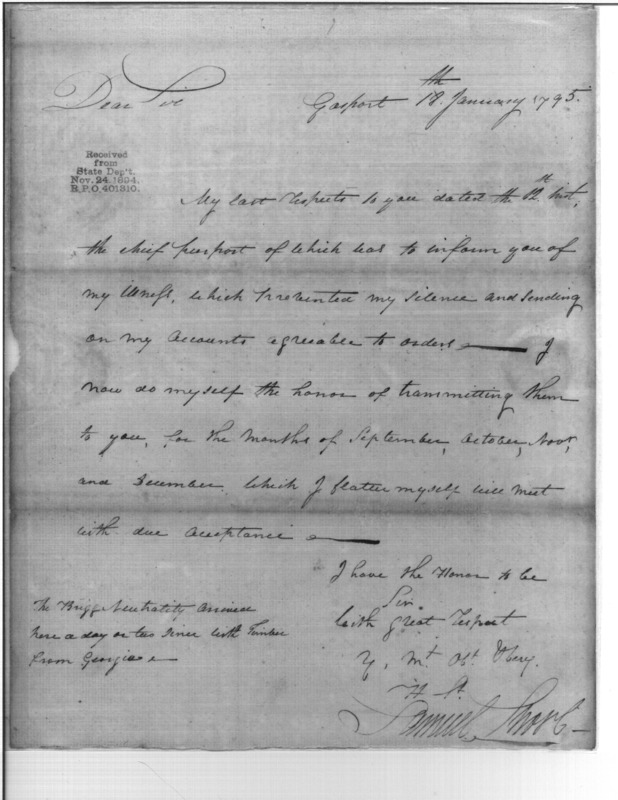 Dear Sir
Gosport 18.th January 1795.
Received
from
State Dep't.
Nov. 24. 1894.
R.P.O. 401310.
My last respects to you dated the 12.st Inst,
the chief purport of which was to inform you of
my illness, which prevented my silence and sending
on my accounts agreeable to orders I
now do myself the honor of transmitting them
to you, for the Months of September, October, Novr,
and December. Which I flatter myself will meet
with due acceptance
I have the Honor to be
Sir
With great respect
Y, Mt Obt
H St
Samuel
The Brigg Neutrality arrived
here a day or two since with Timber
from Georgia